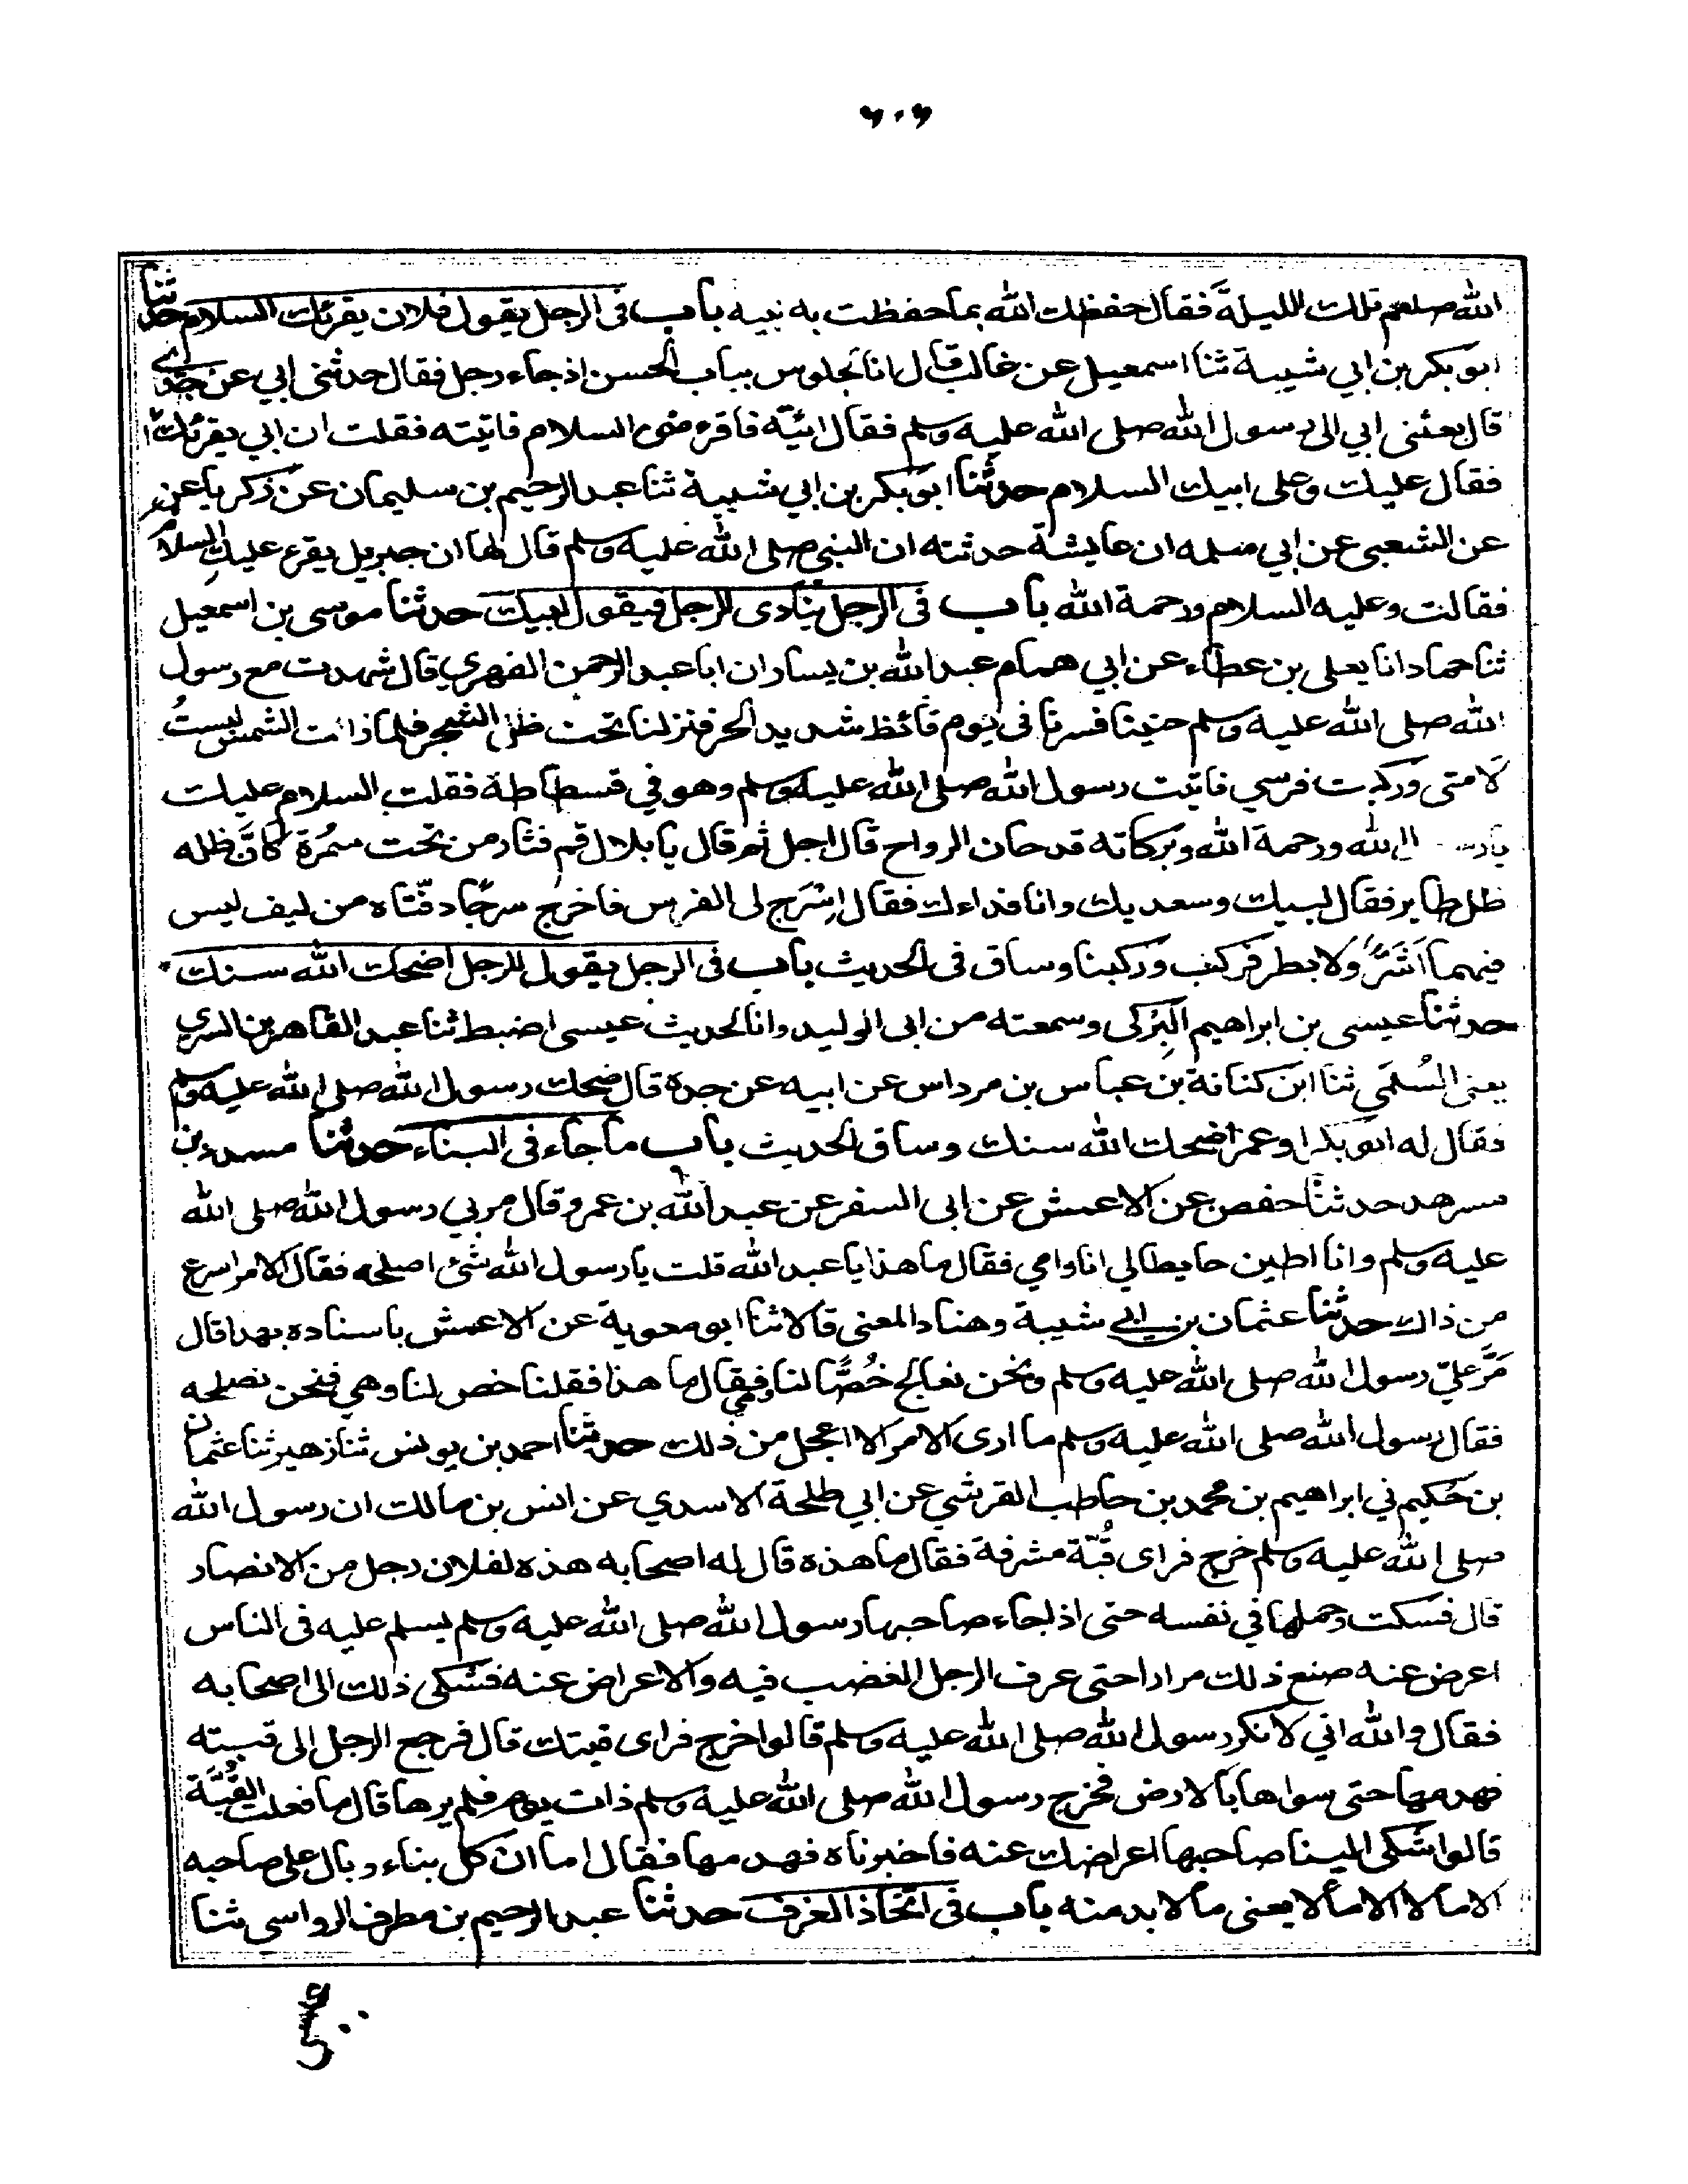 ٦٠٦
الله صلعم تلك لليلة فقال حفظك الله بما حفظت به نبيه باب فى الرجل يقول فلان يقرئك السلام حدثنا
ابو بكر بن ابي شيبة ثنا اسمعيل عن غالب قال انا لجلوس بباب الحسن اذ جاء رجل فقال حدثنى ابي عن جدى
قال بعثنى ابي الى رسول الله صلى الله عليه وسلم فقال ائته فاقرء منى السلام فاتيته فقلت ان ابي يقرئك
فقال عليك وعلى ابيك السلام حدثنا ابو بكر بن ابي شيبة ثنا عبد الرحيم بن سليمان عن زكريا عن
عن الشعبى عن ابي سلمه ان عايشة حدثته ان النبي صلى الله عليه وسلم قال لها ان جبريل يقرء عليكِ السلام
فقالت وعليه السلام ورحمة الله باب فى الرجل ينادى الرجل فيقول لبيك حدثنا موسى بن اسمعيل
ثنا حماد انا يعلى بن عطاء عن ابي همام عبد الله بن يسار ان ابا عبد الرحمن الفهري قال شهدت مع رسول
الله صلى الله عليه وسلم حنينا فسرنا فى يوم قائظ شديد الحر فنزلنا تحت ظل الشجر فلما زالت الشمس لبستُ
لامتى وركبت فرسي فاتيت رسول الله صلى الله عليه وسلم وهو في فسطاطة فقلت السلام عليك
الله ورحمة الله وبركاته قد حان الرواح قال اجل ثم قال يا بلال قم فثار من تحت سمُرة كانَّ ظله
ظل طاير فقال لبيك وسعديك وانا فداءك فقال اسْرَج لى الفرس فاخرج سرجًا دفّتاه من ليف ليس
فيهما اَشَرٌ ولا بطر فركب وركبنا وساق فى الحديث باب فى الرجل يقول للرجل اضحك الله سنك
حدثنا عيسى بن ابراهيم البِرَكى وسمعته من ابى الوليد وانا لحديث عيسى اضبط ثنا عبد القاهر بن السري
يعنى السُلمَي ثنا ابن كنانة بن عباس بن مرداس عن ابيه عن جده قال ضحك رسول الله صلى الله عليه وسلم
فقال له ابو بكر او عمر اضحك الله سنك وساق الحديث باب ما جاء فى البناء حدثنا مسدد بن
مسرهد حدثنا حفص عن الاعمش عن ابى السفر عن عبد الله بن عمرو قال مر بي رسول الله صلى الله
عليه وسلم وانا اطين حايطا لي انا وامي فقال ما هذا يا عبد الله قلت يا رسول الله شئ اصلحه فقال الامر اسرع
من ذاك حدثنا عثمان بن ابي شيبة وهناد المعنى قالا ثنا ابو معوية عن الاعمش باسناده بهذا قال
مَرَّ عليّ رسول الله صلى الله عليه وسلم ونحن نعالج خُصًّا لنا وهى فقال ما هذا فقلنا خص لنا وهي فنحن نصلحه
فقال رسول الله صلى الله عليه وسلم ما ارى الامر الا اعجل من ذلك حدثنا احمد بن يونس ثنا زهير ثنا عثمان
بن حَكيم ني ابراهيم بن محمد بن حاطب القرشي عن ابي طلحة الاسدي عن انس بن مالك ان رسول الله
صلى الله عليه وسلم خرج فراى قُبّة مشرفة فقال ما هذه قال له اصحابه هذه لفلان رجل من الانصار
قال فسكت وحملها في نفسه حتى اذا جاء صاحبها رسول الله صلى الله عليه وسلم يسلم عليه فى الناس
اعرض عنه صنع ذلك مرارا حتى عرف الرجل الغضب فيه والاعراض عنه فشكى ذلك الى اصحابه
فقال والله اني لانكر رسول الله صلى الله عليه وسلم قالوا خرج فراى قبتك قال فرجع الرجل الى قبته
فهدمها حتى سواها بالارض فخرج رسول الله صلى الله عليه وسلم ذات يوم فلم يرها قال ما فعلت القُبَّة
قالوا شكى الينا صاحبها اعراضك عنه فاخبرناه فهدمها فقال اما ان كل بناء وبال على صاحبه
الا ما لا الا ما لا يعنى ما لا بد منه باب فى اتخاذ الغرف حدثنا عبد الرحيم بن مطرف الرواسى ثنا